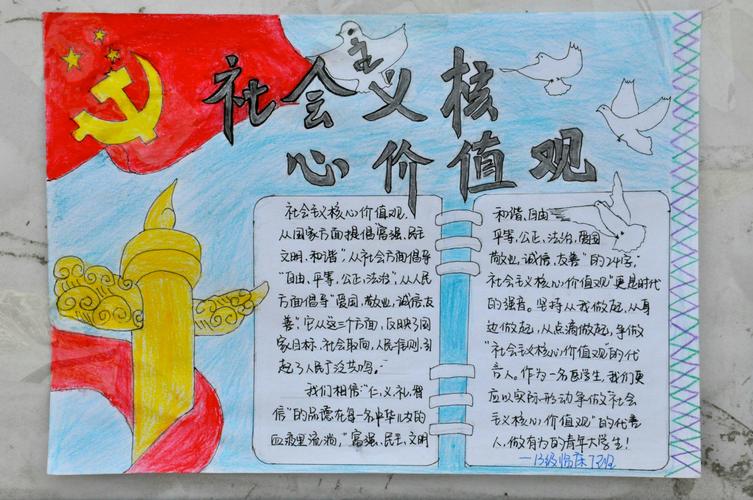 社会主义核
心价值观
社会主义核心价值观,
从国家方面提倡富强、民主
文明、和谐",从社会方面倡导
"自由、平等、公正、法治",从人民
方面倡导"爱国、敬业、诚信、友
善"。它从这三个方面,反映了国
家目标、社会取向,人民准则,引
起了人民广泛共鸣。
我们相信"仁、义、礼、智
信"的品德在每一名中华儿女的
血液里流淌,"富强、民主、文明
和谐、自由
平等、公正、法治、爱国
敬业、诚信、友善"的24字,
社会主义核心价值观"更是时代
的强音。坚持从我做起,从身
边做起,从点滴做起,争做
"社会主义核心价值观"的代
言人。作为一名医学生,我们更
应以实际行动争做"社会
主义核心价值观"的代言
人,做有为的青年大学生!
—13级临床17班